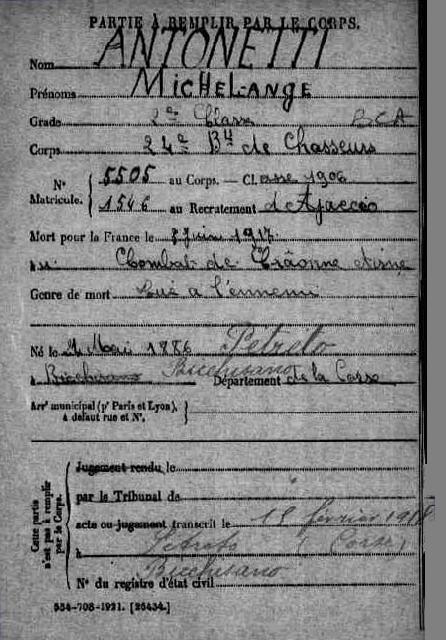 PARTIE À REMPLIR PAR LE CORPS.
Nom ANTONETTI
Prénoms MICHEL-ANGE
Grade 2e Classe BCA
Corps 24e Bn de Chasseurs
N° Matricule. 5505 au Corps. — Classe 1906
1546 au Recrutement d'Ajaccio
Mort pour la France le Juin 1917
au Combat de Craonne Aisne
Genre de mort Tué à l'ennemi
Né le Mai 1886 Petreto
à Bicchisano Bicchisano Département de la Corse
Arrt municipal (pr Paris et Lyon), à défaut rue et N°.
Cette partie n'est pas à remplir par le Corps.
Jugement rendu le
par le Tribunal de
acte ou jugement transcrit le 18 février 1918
à Petreto (Corse)
Bicchisano
N° du registre d'état civil
534-708-1921. [26434.]